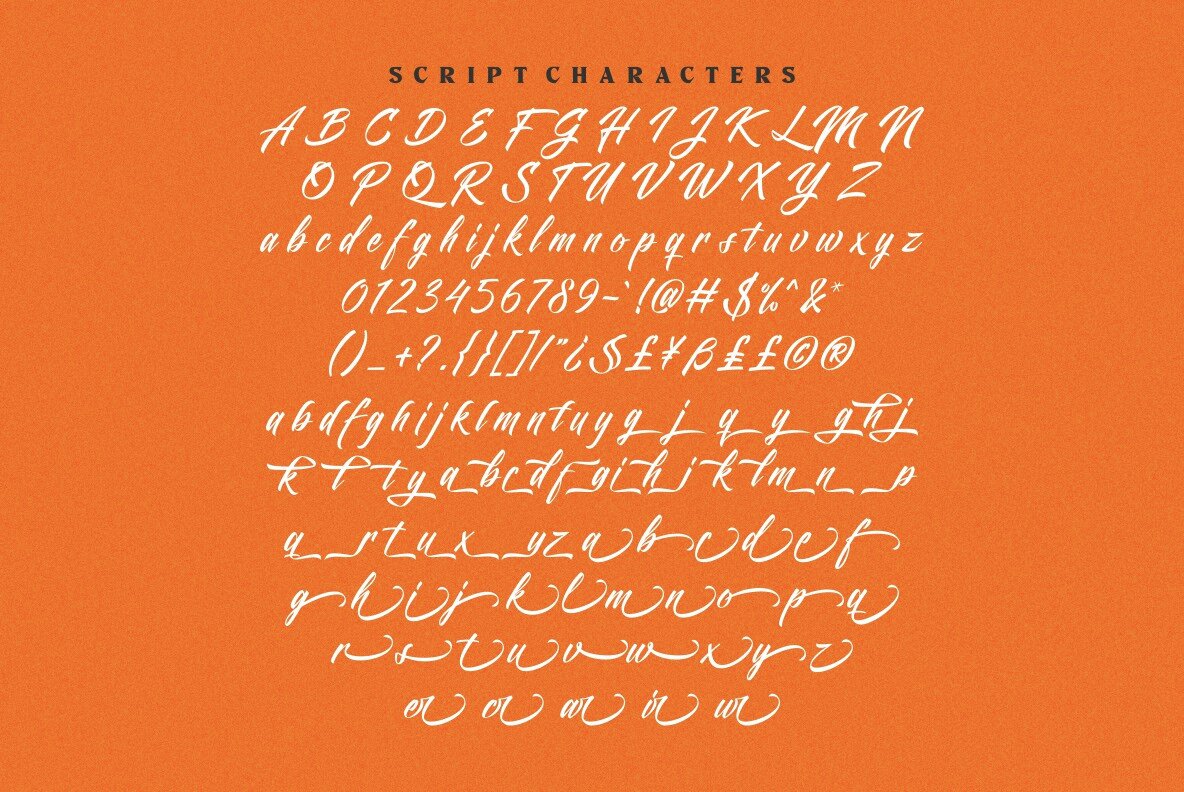 SCRIPT CHARACTERS
A B C D E F G H I J K L M N
O P Q R S T U V W X Y Z
a b c d e f g h i j k l m n o p q r s t u v w x y z
0123456789-`!@#$%^&*
()_+?.{}[]/"¿$£¥β₤£©®
a b d f g h i j k l m n t u y g j q y g h j
k t t y a b c d f g i h j k t m n p
q r t u x y z a b c d e f
g h i j k l m n o p q
r s t u v w x y z
er or ar ir ur